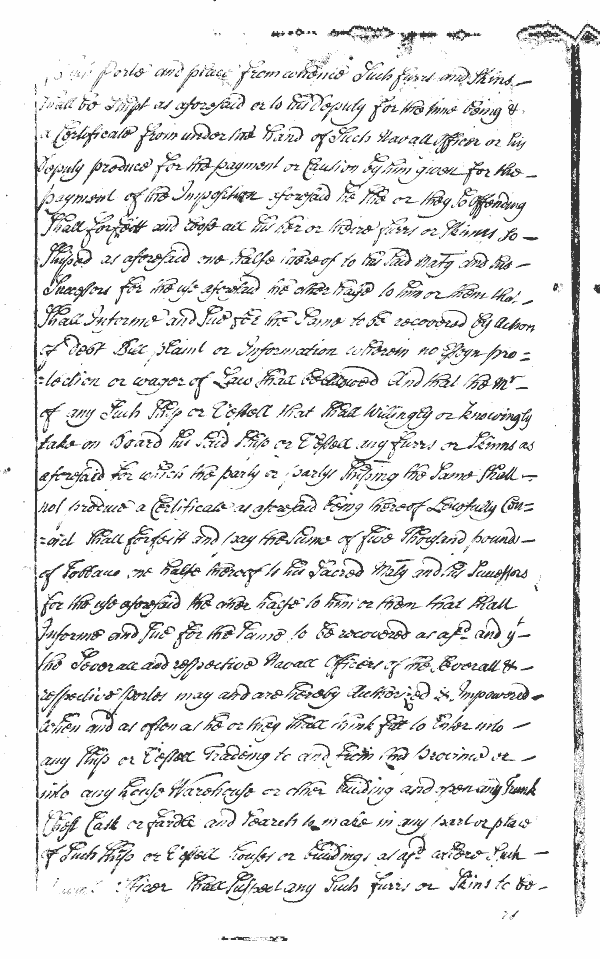 Ports and place from whence Such furrs and Skins
Shall be Shipt as aforesaid or to his Deputy for the time being &
a Certificate from under the hand of Such Navall Officer or his
Deputy produce for the payment or Caution by him given for the
payment of the Imposition aforesaid he She or they So offending
Shall forfeit and loose all his her or their furrs or Skinns So
Shipped as aforesaid one halfe thereof to his Said Maty and his
Successors for the use aforesaid the other halfe to him or them that
Shall Informe and Sue for the Same to be recovered by Action
of Debt Bill plaint or Information wherein no Essoyn pro=
=tection or wager of Law Shall be allowed And that the Mr
of any Such Ship or Vessell that Shall Willingly or knowingly
take on Board his Said Ship or Vessell any furrs or Skinns as
aforesaid for which the party or partys Shipping the Same Shall
not produce a Certificate as aforesaid being thereof Lawfully Con=
=vict Shall forfeit and pay the Sume of five Thousand pounds
of Tobbaco one halfe thereof to his Sacred Maty and his Successors
for the use aforesaid the other halfe to him or them that Shall
Informe and Sue for the Same to be recovered as afd and yt
the Severall and respective Navall Officers of the Severall &
respective portes may and are hereby Authorized & Impowered
when and as often as he or they Shall think fitt to Enter into
any Ship or Vessell Tradeing to and from this Province or
into any house Warehouse or other building and open any Trunk
Chest Cask or fardle and Search to make in any part or place
of Such Ship or Vessell houses or buildings as afd where Such
Navall Officer Shall Suspect any Such furrs or Skins to be